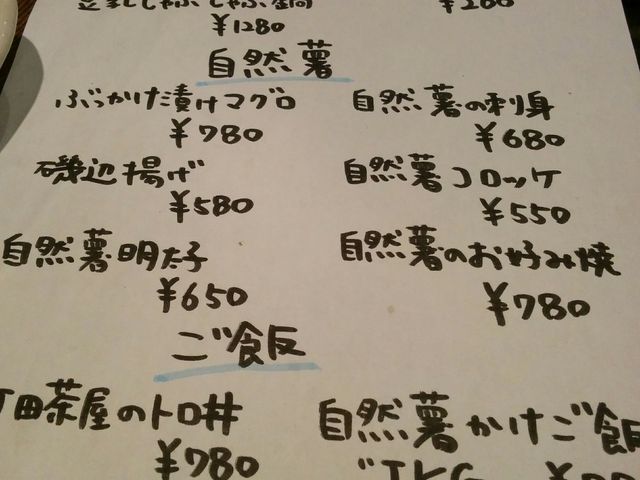 しゃぶしゃぶ鍋
¥1280
自然薯
ぶっかけ漬けマグロ 自然薯の刺身
¥780 ¥680
磯辺揚げ 自然薯コロッケ
¥580 ¥550
自然薯明太子 自然薯のお好み焼
¥650 ¥780
ご飯
町田茶屋のトロ丼 自然薯かけご飯
¥780